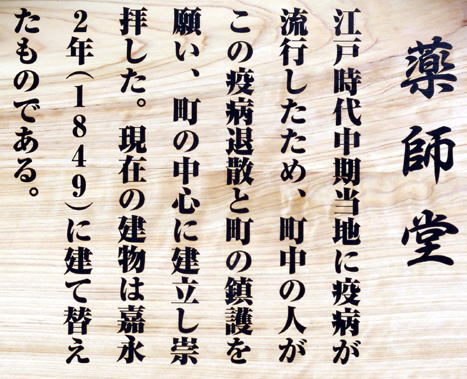 薬師堂
江戸時代中期当地に疫病が
流行したため、町中の人が
この疫病退散と町の鎮護を
願い、町の中心に建立し崇
拝した。現在の建物は嘉永
2年(1849)に建て替え
たものである。